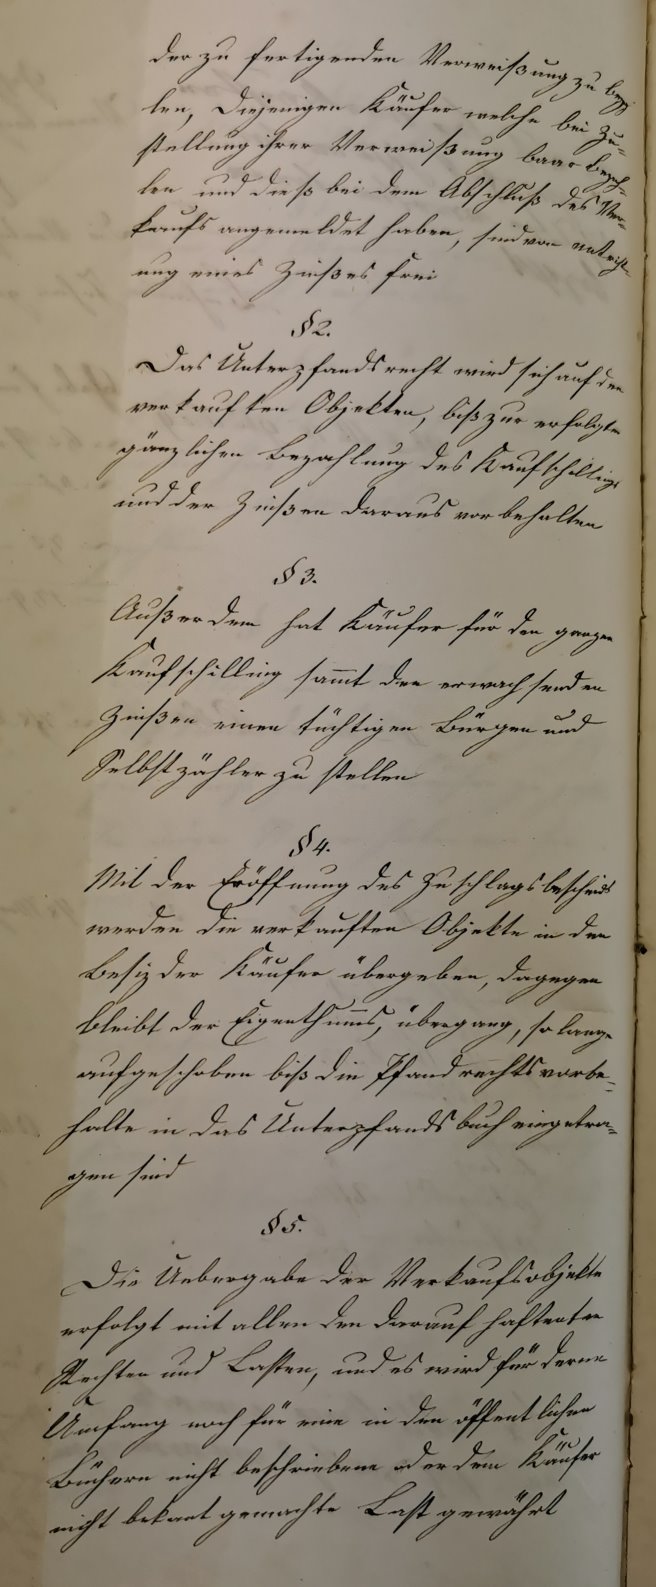 der zu fertigenden Verweißung zu bezah
len, Diejenigen Käufer welche bei Zu-
stellung ihrer Verweißung baar bezah-
len und dieß bei dem Abschluß des Ver-
kaufs angemeldet haben, sind von entricht-
ung eines Zinßes frei
§ 2.
Das Unterpfandsrecht wird sich auf den
verkauften Objekten, biß zur erfolgten
gänzlichen Bezahlung des Kaufschillings
und der Zinßen daraus vorbehalten
§ 3.
Außerdem hat Käufer für den ganzen
Kaufschilling sammt den erwachsenden
Zinßen einen tüchtigen Bürgen und
Selbstzähler zu stellen
§ 4.
Mit der Eröffnung des Zuschlagsbescheids
werden die verkauften Objekte in den
Besiz der Käufer übergeben, dagegen
bleibt der Eigenthums, übergang, so lange
aufgeschoben biß die Pfandrechtsvorbe-
halte in das Unterpfandsbuch eingetra-
gen sind
§ 5.
Die Uebergabe der Verkaufsobjekte
erfolgt mit allen den darauf haftenden
Rechten und Lasten, und es wird für deren
Umfang noch für eine in den öffentlichen
Büchern nicht beschriebene oder dem Käufer
nicht bekant gemachte Last gewährt